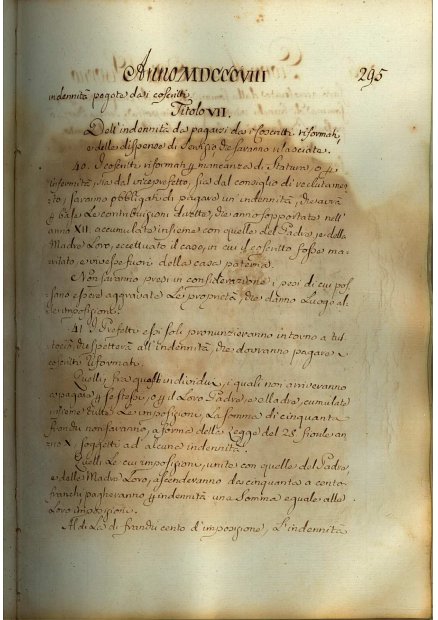 Anno MDCCCVIII 295
indennità pagate dai coscritti.
Titolo VII.
Dell'indennità da pagarsi dai Coscritti riformati,
e delle dispense di Servizio, che saranno rilasciate.
40. I coscritti riformati p mancanza di Statura, o p
infermità, sia dal viceprefetto, sia dal consiglio di reclutamen-
to, saranno obbligati di pagare un indennità, che avrà
p base le contribuzioni dirette, che anno sopportate nell'
anno XII. accumulate insieme con quelle del Padre, e della
Madre Loro, eccettuato il caso, in cui il coscritto fosse ma-
ritato, e vivesse fuori della casa paterna.
Non saranno presi in considerazione i pesi di cui pos-
sano essere aggravate Le proprietà, che danno Luogo al-
le imposizioni.
41. I Prefetti essi soli pronunzieranno intorno a tut-
tociò, che spetterà all'indennità, che dovranno pagare i
coscritti riformati.
Quelli fra questi individui, i quali non arriveranno
a pagare p se stessi, o p il Loro Padre, e Madre, cumulate
insieme tutte Le imposizioni, La somma di cinquanta
franchi non saranno, a forma della Legge del 28. fiorile an-
no X, soggetti ad alcuna indennità.
Quelli Le cui imposizioni, unite con quelle del Padre
e della Madre Loro, ascenderanno da cinquanta a cento
franchi pagheranno p indennità una Somma eguale alle
Loro imposizioni.
Al di Là di franchi cento d'imposizione, L'indennità